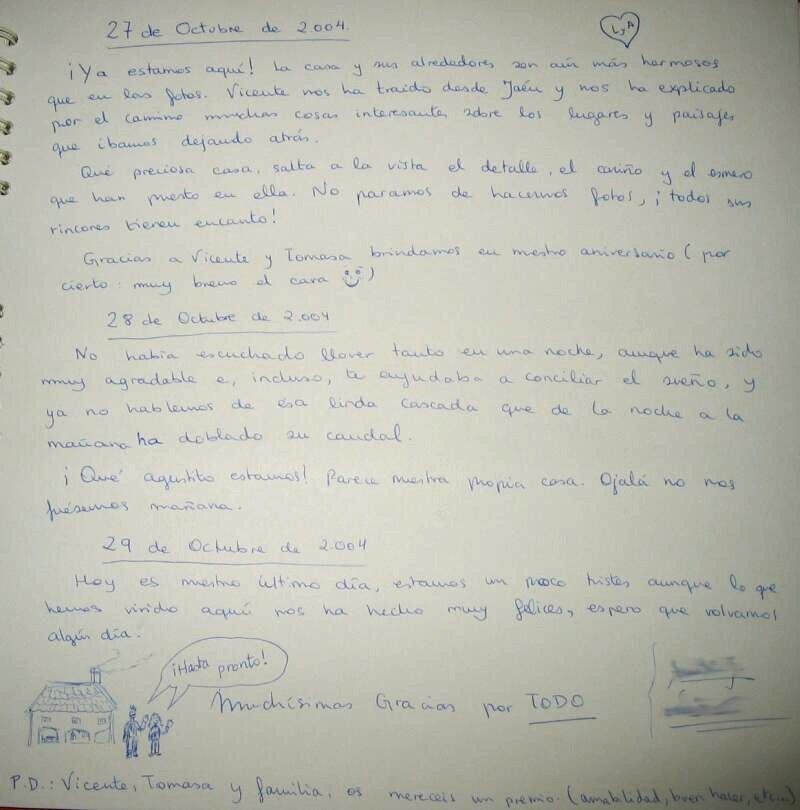 27 de Octubre de 2.004.
L y A
¡Ya estamos aquí! La casa y sus alrededores son aún más hermosos
que en las fotos. Vicente nos ha traido desde Jaén y nos ha explicado
por el camino muchas cosas interesantes sobre los lugares y paisajes
que íbamos dejando atrás.
Qué preciosa casa, salta a la vista el detalle, el cariño y el esmero
que han puesto en ella. No paramos de hacernos fotos, ¡todos sus
rincones tienen encanto!
Gracias a Vicente y Tomasa brindamos en nuestro aniversario (por
cierto: muy bueno el cava)
28 de Octubre de 2.004
No había escuchado llover tanto en una noche, aunque ha sido
muy agradable e, incluso, te ayudaba a conciliar el sueño, y
ya no hablemos de esa linda cascada que de la noche a la
mañana ha doblado su caudal.
¡Qué agustito estamos! Parece nuestra propia casa. Ojalá no nos
fuésemos mañana.
29 de Octubre de 2.004
Hoy es nuestro último día, estamos un poco tristes aunque lo que
hemos vivido aquí nos ha hecho muy felices, espero que volvamos
algún día.
¡Hasta pronto!
Muchísimas Gracias por TODO
P.D.: Vicente, Tomasa y familia, os mereceis un premio. (amabilidad, buen hacer, etc...)